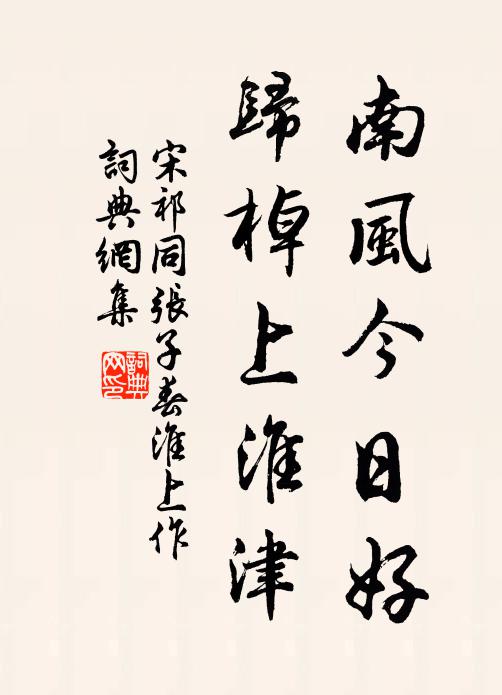 南風今日好
歸棹上淮津
宋祁同張子春淮上作
詞典網集
詞典网印